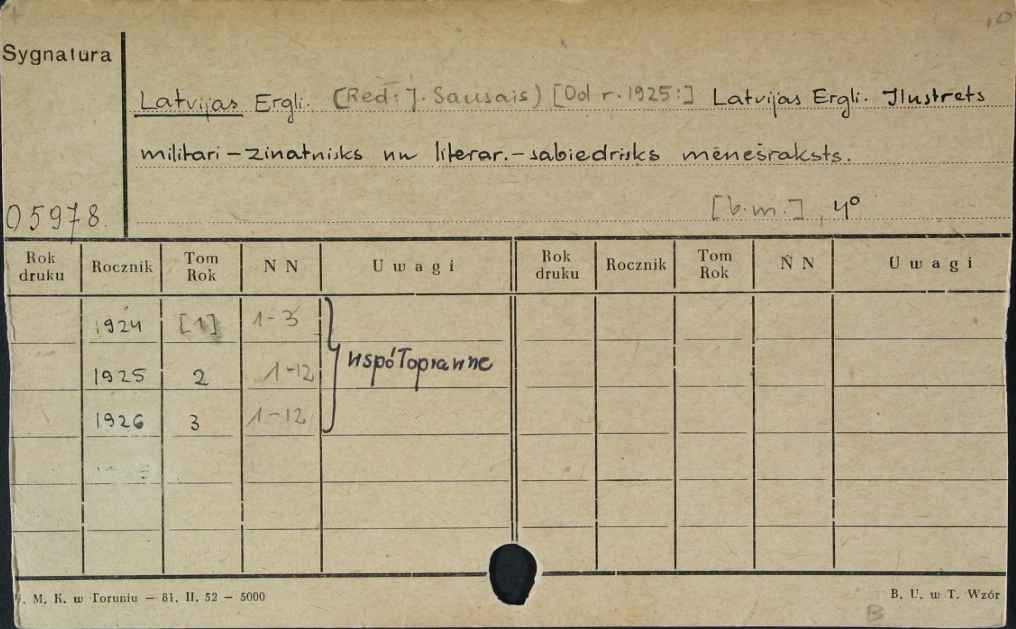 Sygnatura
Latvijas Ergli. (Red: J. Sausais) [Od r. 1925:] Latvijas Ergli. Ilustrets
militari – zinatnisks un literar. – sabiedrisks mēnešraksts.
05978. [b.m.], 4°
Rok druku Rocznik Tom Rok N N Uwagi Rok druku Rocznik Tom Rok N N Uwagi
1924 [1] 1-3
1925 2 1-12 współoprawne
1926 3 1-12
M. K. w Toruniu — 81. II. 52 — 5000 B. U. w T. Wzór
B